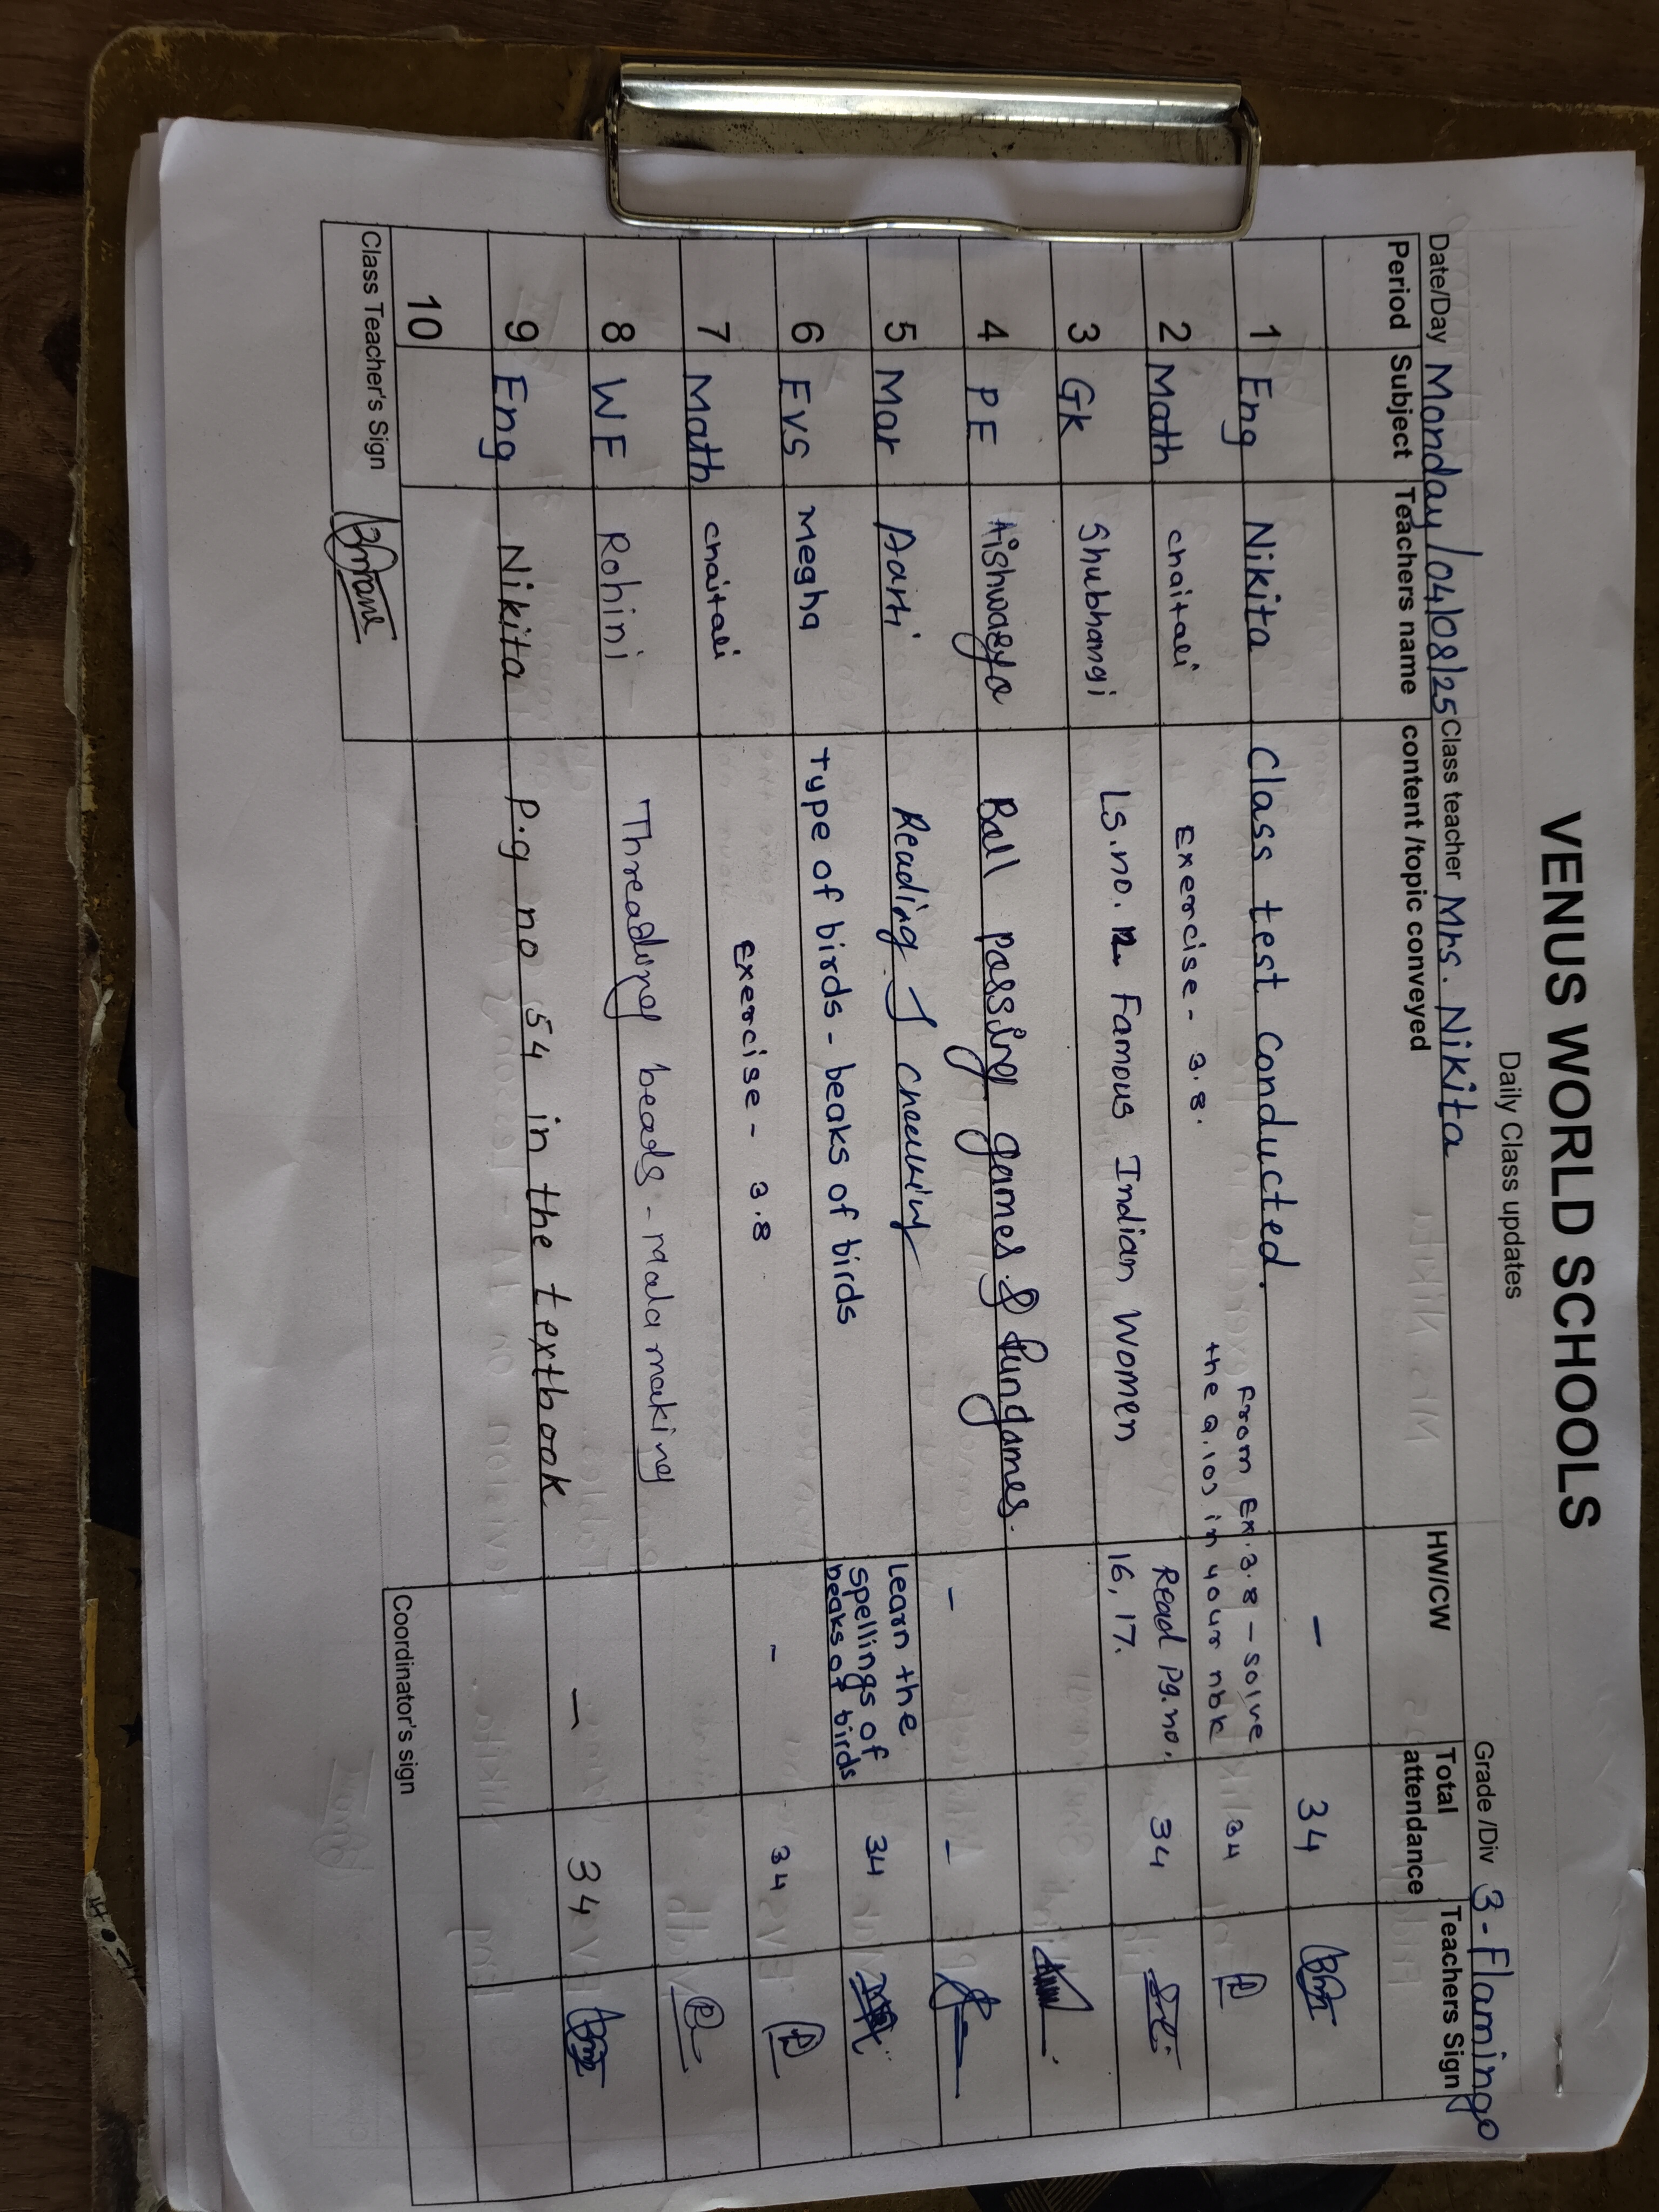 VENUS WORLD SCHOOLS
Daily Class updates
Date/Day Monday/04/08/25 Class teacher Mrs. Nikita Grade /Div 3-Flamingo
Period Subject Teachers name content/topic conveyed HW/CW Total attendance Teachers Sign
1 Eng Nikita Class test conducted. – 34
2 Math chaitali Exercise - 3.8. From Ex.3.8 – solve the Q. in your nbk 34
3 Gk Shubhangi Ls.no. Famous Indian Women Read pg.no. 16, 17. 34
4 PE Aishwarya Ball passing games & fungames.
5 Mar Aarti Reading checking – –
6 EVS Megha Type of birds - beaks of birds Learn the spellings of beaks of birds 34
7 Math chaitali Exercise - 3.8 - 34
8 WE Rohini Threading beads - Mala making
9 Eng Nikita P.g no 54 in the textbook – 34
10
Class Teacher's Sign Coordinator's sign